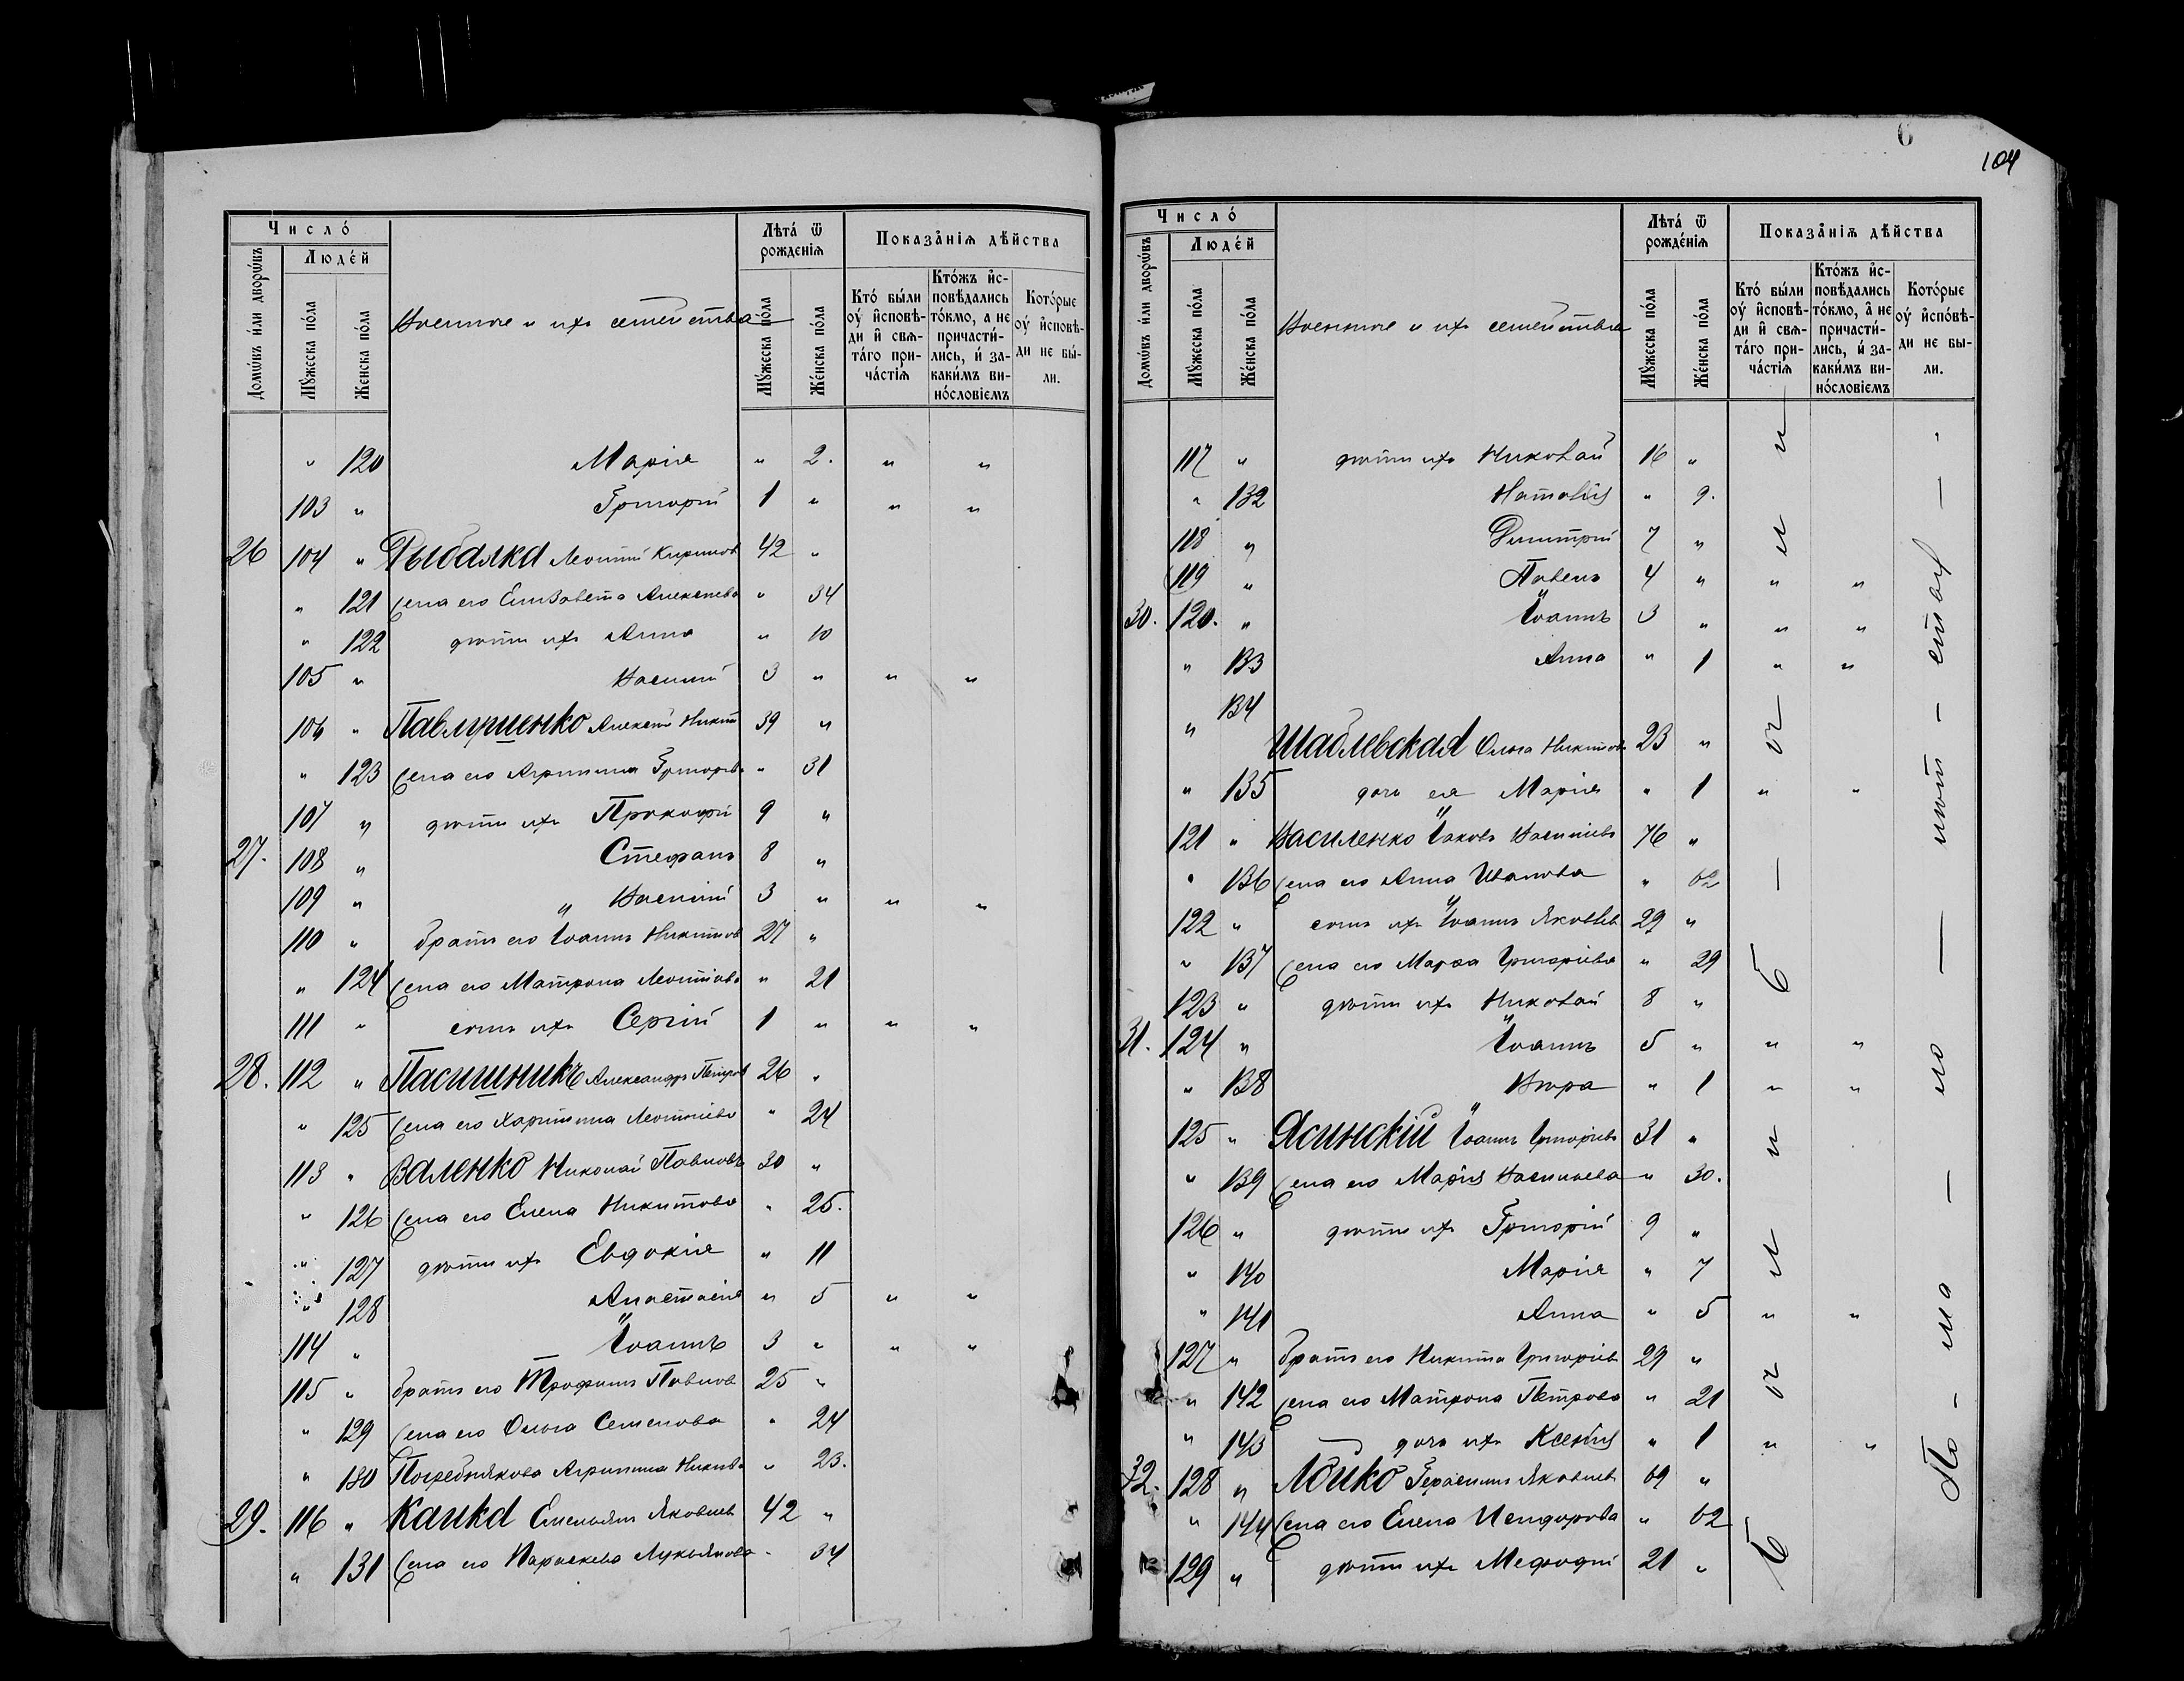 6
104
Число́
Домѡ́въ и́ли дворѡ́въ
Люде́й
Мꙋ́жеска по́ла
Же́нска по́ла
Военные и ихъ семейства
Лѣта́ ѿ рожде́нїѧ
Мꙋ́жеска по́ла
Же́нска по́ла
Показа́нїѧ дѣ́йства
Кто́ бы́ли оу҆ и҆сповѣ́ди и҆ свѧта́го прича́стїѧ
Кто́жъ и҆сповѣ́дались то́кмо, а҆ не причасти́лись, и҆ за каки́мъ вино́словїемъ
Кото́рые оу҆ и҆сповѣ́ди не бы́ли.
" 120 Марія " 2. " "
103 " Григорій 1 " " "
26 104 " Рыбалка Леонтій Кирилов 42 "
" 121 жена его Елизавета Алексеева " 34
" 122 дѣти ихъ Анна " 10
105 " Василий 3 " " "
106 " Павлушенко Алексей Никит 39 "
" 123 жена его Агрипина Григорьев " 31
107 " дѣти ихъ Прокофий 9 "
27. 108 " Стефанъ 8 "
109 " " Василій 3 " " "
110 " братъ его Іоаннъ Никитовъ 27 "
" 124 жена его Матрона Леонтіева " 21
111 " сынъ ихъ Сергій 1 " " "
28. 112 " Пасишникъ Александръ Петров 26 "
" 125 жена его Харитина Леонтіева " 24
113 " Валенко Николай Павловъ 30 "
" 126 жена его Елена Никитова " 25.
" 127 дѣти ихъ Евдокия " 11
" 128 Анастасія " 5 " "
114 " Іоаннъ 3 " " "
115 " братъ его Трофимъ Павлов 25 "
" 129 жена его Ольга Семенова " 24
" 130 Погребнякова Агрипина " 23.
29. 116 " Каика Емельян Яковлев 42 "
" 131 жена его Параскева Лукьянова " 34
Число́
Домѡ́въ и́ли дворѡ́въ
Люде́й
Мꙋ́жеска по́ла
Же́нска по́ла
Военные и ихъ семейства
Лѣта́ ѿ рожде́нїѧ
Мꙋ́жеска по́ла
Же́нска по́ла
Показа́нїѧ дѣ́йства
Кто́ бы́ли оу҆ и҆сповѣ́ди и҆ свѧта́го прича́стїѧ
Кто́жъ и҆сповѣ́дались то́кмо, а҆ не причасти́лись, и҆ за каки́мъ вино́словїемъ
Кото́рые оу҆ и҆сповѣ́ди не бы́ли.
117 " дѣти ихъ Николай 16 "
" 132 Наталія " 9.
118 " Димитрій 7 "
119 " Павелъ 4 " " "
30. 120. " Іоаннъ 3 " " "
" 133 Анна " 1 " "
" 134 Шаблевская Ольга Никитова 23 "
" 135 дочь ея Марія " 1 " "
121 " Василенко Іаковъ Василіевъ 76 "
" 136 жена его Анна Иванова "
122 " сынъ ихъ Іоаннъ Яковлев 29 "
" 137 жена его Марѳа Григоріева " 29
123 " дѣти ихъ Николай 8 "
31. 124 " Іоаннъ 5 " " "
" 138 Вѣра " 1 " "
125 " Ясинскій Іоаннъ Григоріевъ 31 "
" 139 жена его Марія Васильева " 30.
126 " дѣти ихъ Григорій 9 "
" 140 Марія " 7
" 141 Анна " 5 " "
127 " братъ его Никита Григоріев 29 "
" 142 жена его Матрона Петрова " 21
" 143 дочь ихъ Ксенія " 1 " "
32. 128 " Лойко Герасимъ Яковлев 69 "
" 144 жена его Елена " 62
129 " дѣти ихъ Мефодий 21 "
Были
Были
По малолетству